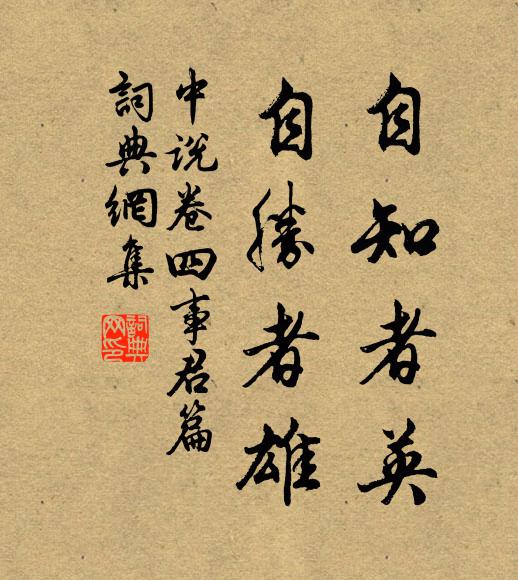 自知者英
自勝者雄
中說卷四事君篇
詞典網集
詞典網印